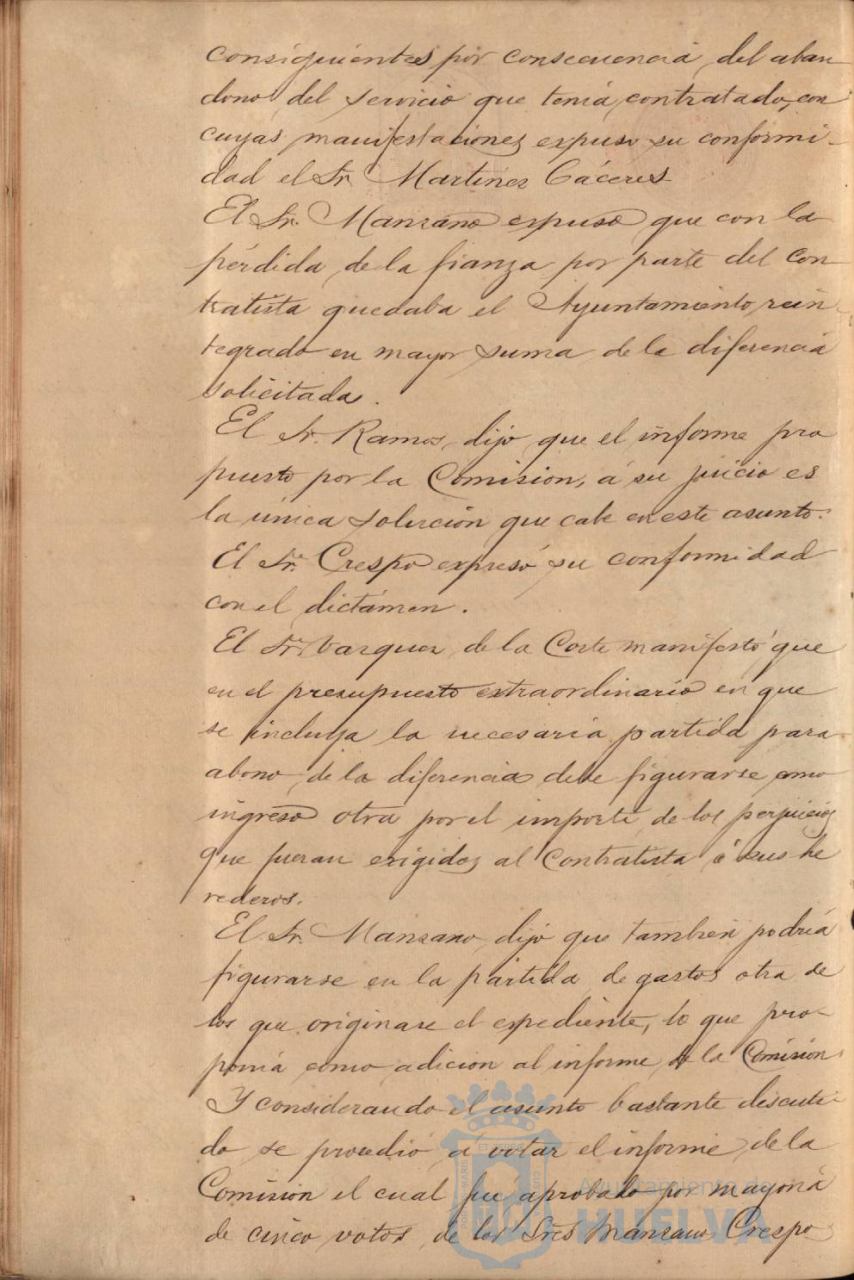 consiguientes por consecuencia del aban
dono del servicio que tenia contratado, con
cuyas manifestaciones expuso su conformi-
dad el Sr. Martinez Cáceres
El Sr. Manzano expuso que con la
pérdida de la fianza por parte del con
tratista quedaba el Ayuntamiento rein-
tegrado en mayor suma de la diferencia
solicitada.
El Sr. Ramos, dijo que el informe pro
puesto por la Comision, á su juicio es
la única solución que cabe en este asunto.
El Sr. Crespo expresó su conformidad
con el dictámen.
El Sr. Vazquez de la Corte manifestó que
en el presupuesto extraordinario en que
se incluya la necesaria partida para
abono de la diferencia debe figurarse como
ingreso otra por el importe de los perjuicios
que fueran exigidos al Contratista ó sus he
rederos.
El Sr. Manzano, dijo que tambien podria
figurarse en la partida de gastos otra de
los que originase el expediente, lo que pro-
ponia como adicion al informe de la Comision
Y considerando el asunto bastante discuti-
do se procedió a votar el informe de la
Comision el cual fue aprobado por mayoria
de cinco votos de los Sres Manzano, Crespo
Ayuntamiento de
HUELVA